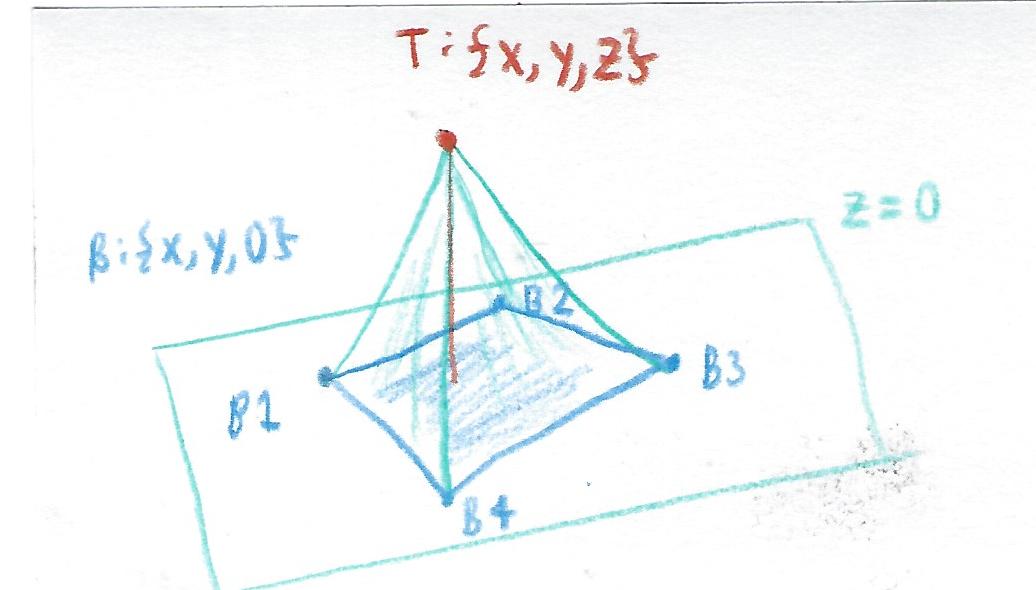 T:{x,y,z}
z=0
B:{x,y,0}
B2
B3
B1
B4